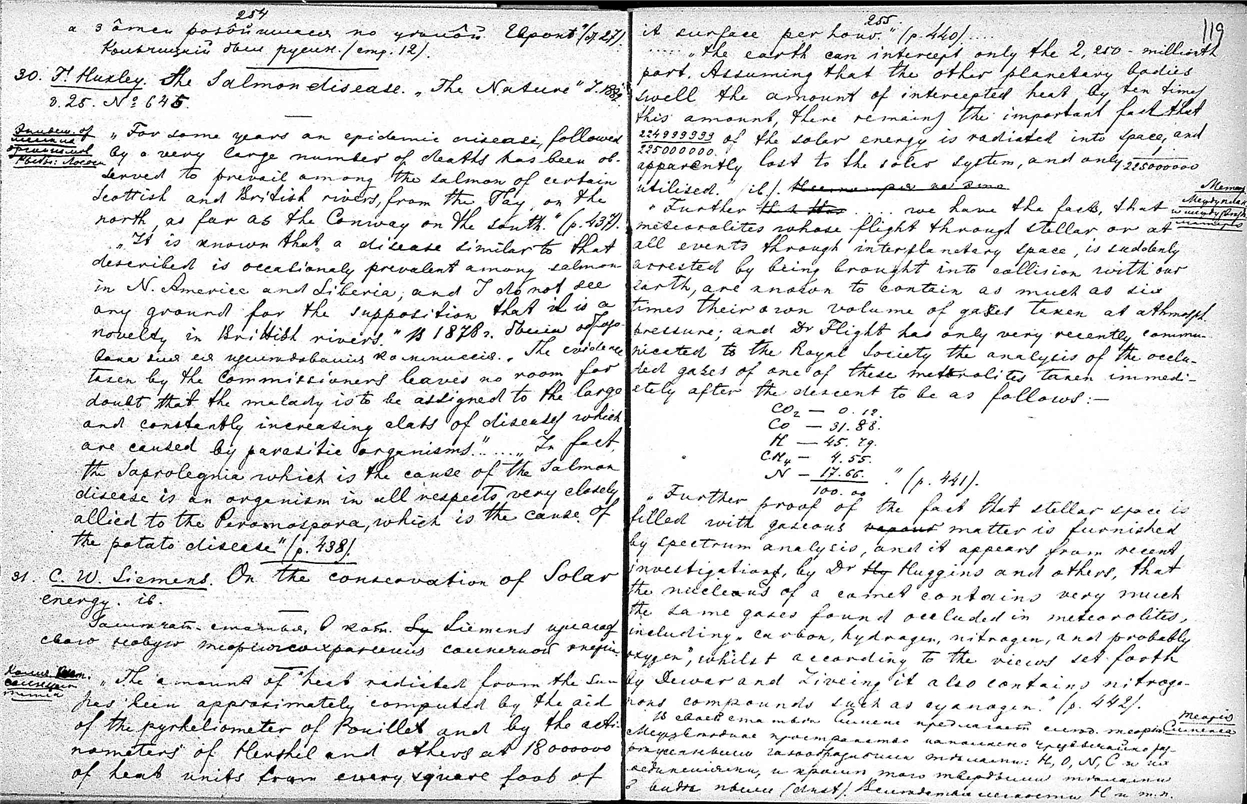 254
по Европ" (p. 27).
(стр. 12).
30. T. Huxley. The Salmon disease. "The Nature"
v. 25. № 645
"For some years an epidemic disease, followed
by a very large number of deaths has been ob-
served to prevail among the salmon of certain
Scottish and British rivers, from the Tay, on the
north, as far as the Conway on the south." (p. 437).
"It is known that a disease similar to that
described is occationaly prevalent among salmon
in N. America and Siberia; and I do not see
any ground for the supposition that it is a
novelty in British rivers." В 1878 г. была
коммиссия. "The evidence
taken by the Commissioners leaves no room for
doubt that the malady is to be assigned to the large
and constantly increasing clats of diseases which
are caused by parasitic organisms." ...... "In fact,
the Saprolegnia which is the cause of the Salmon
disease is an organism in all respects very closely
allied to the Peronospora, which is the cause of
the potato disease" (p. 438).
31. C. W. Siemens. On the conservation of Solar
energy. ib.
статья, в кот. Siemens
свою новую солнечной
"The amount of heat radiated from the Sun
has been approximately computed by the aid
of the pyrheliometer of Pouillet and by the acti-
nometers of Hershel and others at 18000000
of heat units from every square foot of
255.
119
it surface per hour." (p. 440)....
..... "the earth can intercept only the 2,250-millionth
part. Assuming that the other planetary bodies
swell the amount of intercepted heat by ten times
this amount, there remains the important fact that
224999999
225000000 of the solar energy is radiated into space, and
apparently lost to the solar system, and only 1/225000000
utilised." ib).
"Further ... we have the fact, that
meteorolites whose flight through stellar or at
all events through interplanetary space, is suddenly
arrested by being brought into collision with our
Earth, are known to contain as much as six
times their own volume of gases taken at athmosph.
pressure; and Dr Flight has only very recently commu-
nicated to the Royal Society the analysis of the occlu-
ded gases of one of these meteorolites taken immedi-
etely after the descent to be as follows:—
CO₂ — 0.12.
CO — 31.88.
H — 45.79.
CH₄ — 4.55.
N — 17.66. " (p. 441).
100.00
"Further proof of the fact that stellar space is
filled with gaseous matter is furnished
by spectrum analysis, and it appears from recent
investigations, by Dr Huggins and others, that
the nucleous of a comet contains very much
the same gases found occluded in meteorolites,
including "carbon, hydrogen, nitrogen, and probably
oxygen", whilst according to the views set forth
by Dewar and Liveing it also contains nitroge-
nous compounds such as cyanogen." (p. 442).
В своей статье Сименс предлагает
пространство наполнено чрезвычайно
газообразными H, O, N, C и их
и кроме того твердыми
в виде пыли (dust). H и т.п.